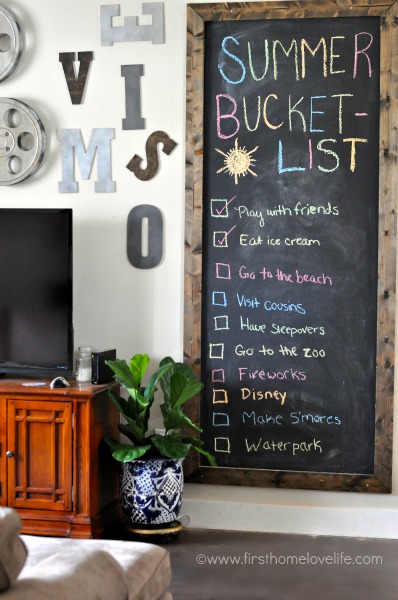 E
V
I
M
S
O
SUMMER
BUCKET-
LIST
Play with friends
Eat ice cream
Go to the beach
Visit cousins
Have Sleepovers
Go to the zoo
Fireworks
Disney
Make S'mores
Waterpark
©www.firsthomelovelife.com